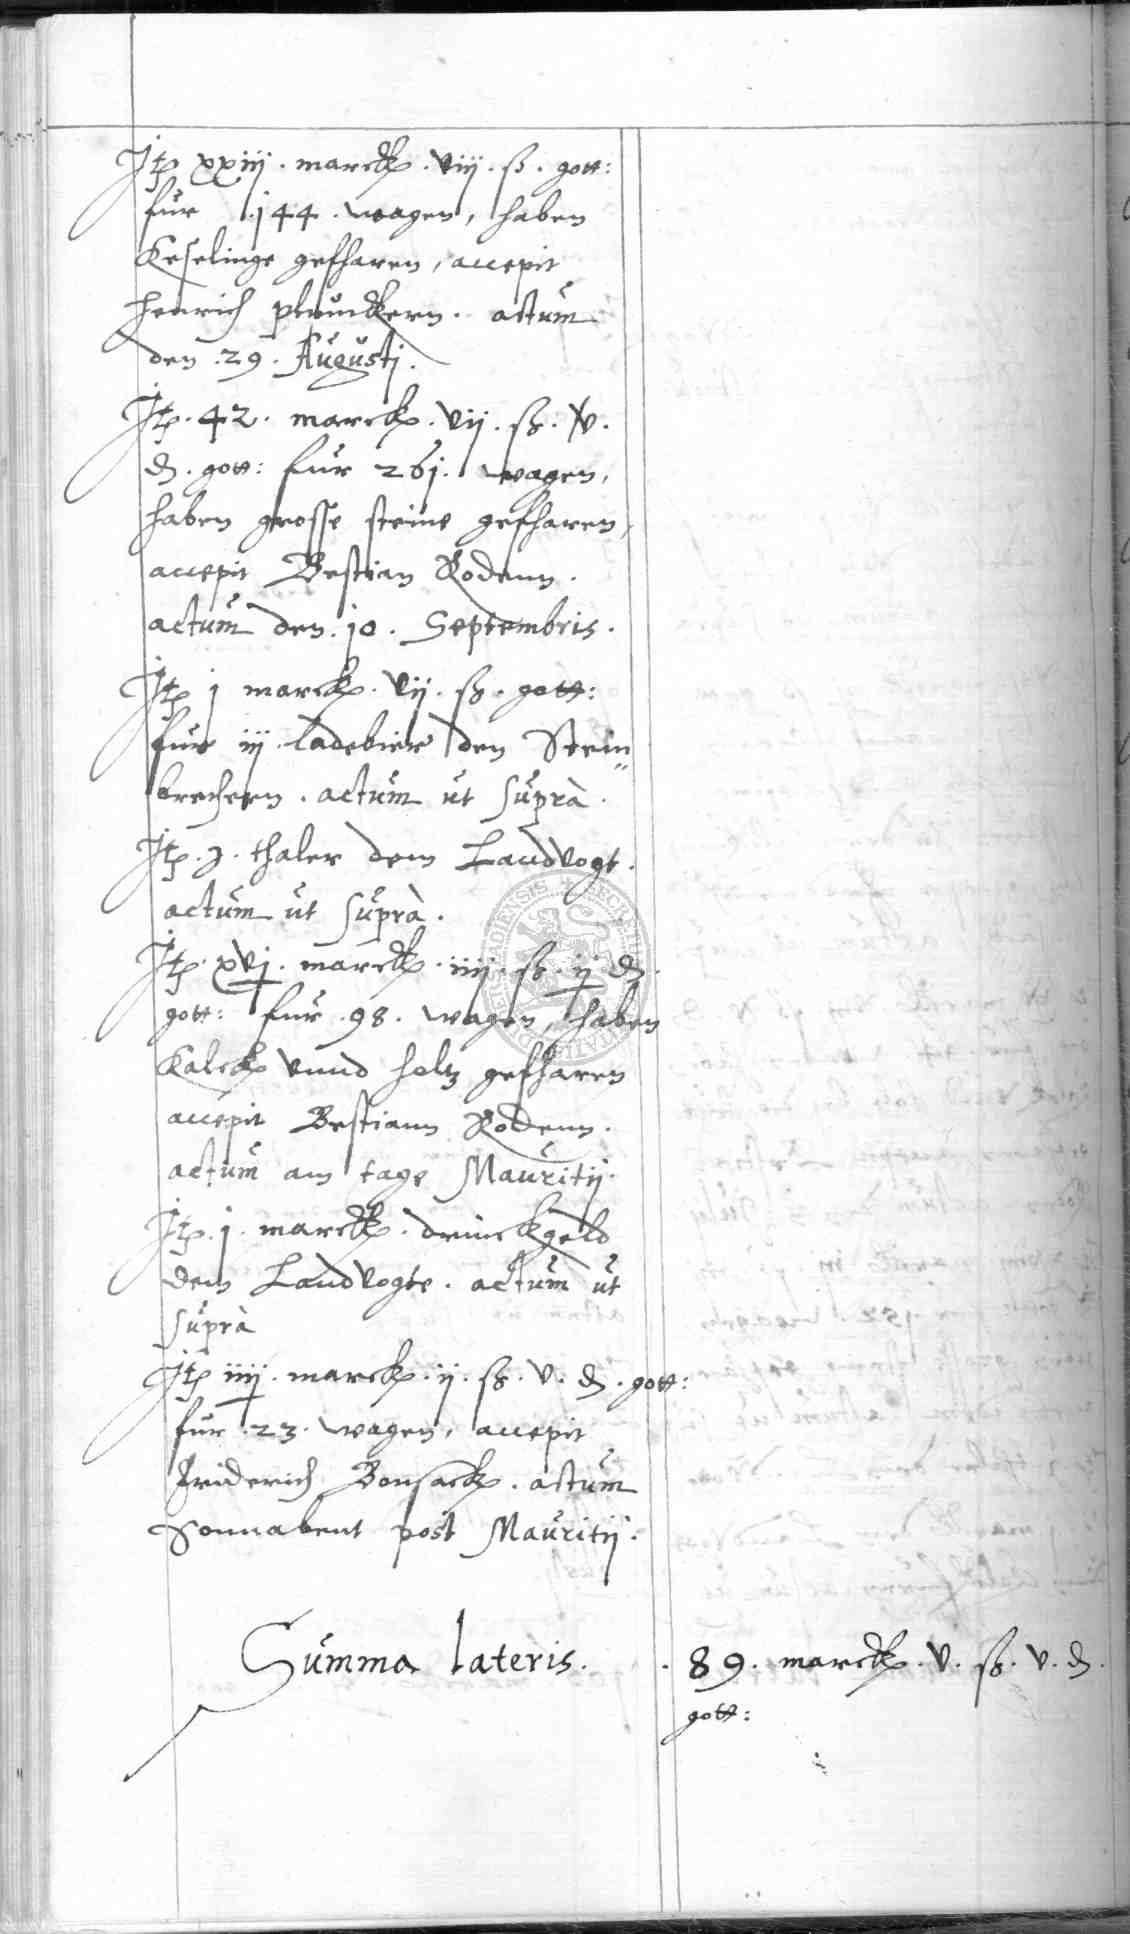 Jtem xxiiij . marck . viij . ß . gott:
fur 144 . wagen, haben
Keselinge gefharen, accepit
Henrich plunckern . actum
den . 29 . Augusti .
Jtem . 42 . marck . vij . ß . v .
d . gott: fur 261 . wagen,
haben grosse steine gefharen,
accepit Bestian Rodenn .
actum den . 10 . Septembris .
Jtem j marck . vij . ß . gott:
fur iij ladebier den Stein„
brechern . actum ut supra .
Jtem . j . thaler dem Landvogt .
actum ut supra .
Jtem . xvj . marck . iiij . ß . ij d .
gott: fur . 98 . wagen, haben
Kalck vnnd holtz gefharen
accepit Bestiann Rodenn .
actum am tage Mauritij .
Jtem . j . marck . drinckgeld
dem Landvogte . actum ut
supra
Jtem iiij . marck . ij . ß . v . d . gott:
fur . 23 . wagen, accepit
Friderich Bonsack . actum
Sonnabent post Mauritij .
Summa lateris . . 89 . marck . v . ß . v . d .
gott: